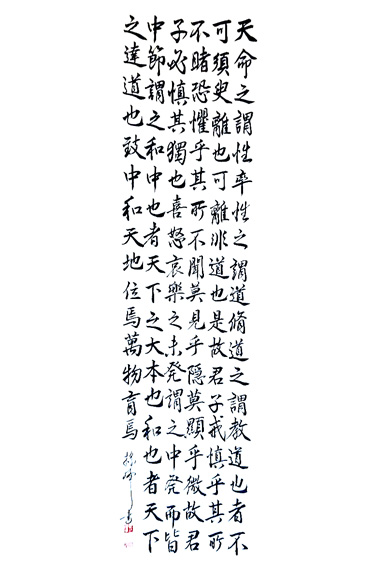 天命之謂性率性之謂道脩道之謂教道也者不
可須臾離也可離非道也是故君子戒慎乎其所
不睹恐懼乎其所不聞莫見乎隱莫顯乎微故君
子必慎其獨也喜怒哀樂之未発謂之中発而皆
中節謂之和中也者天下之大本也和也者天下
之達道也致中和天地位焉萬物育焉